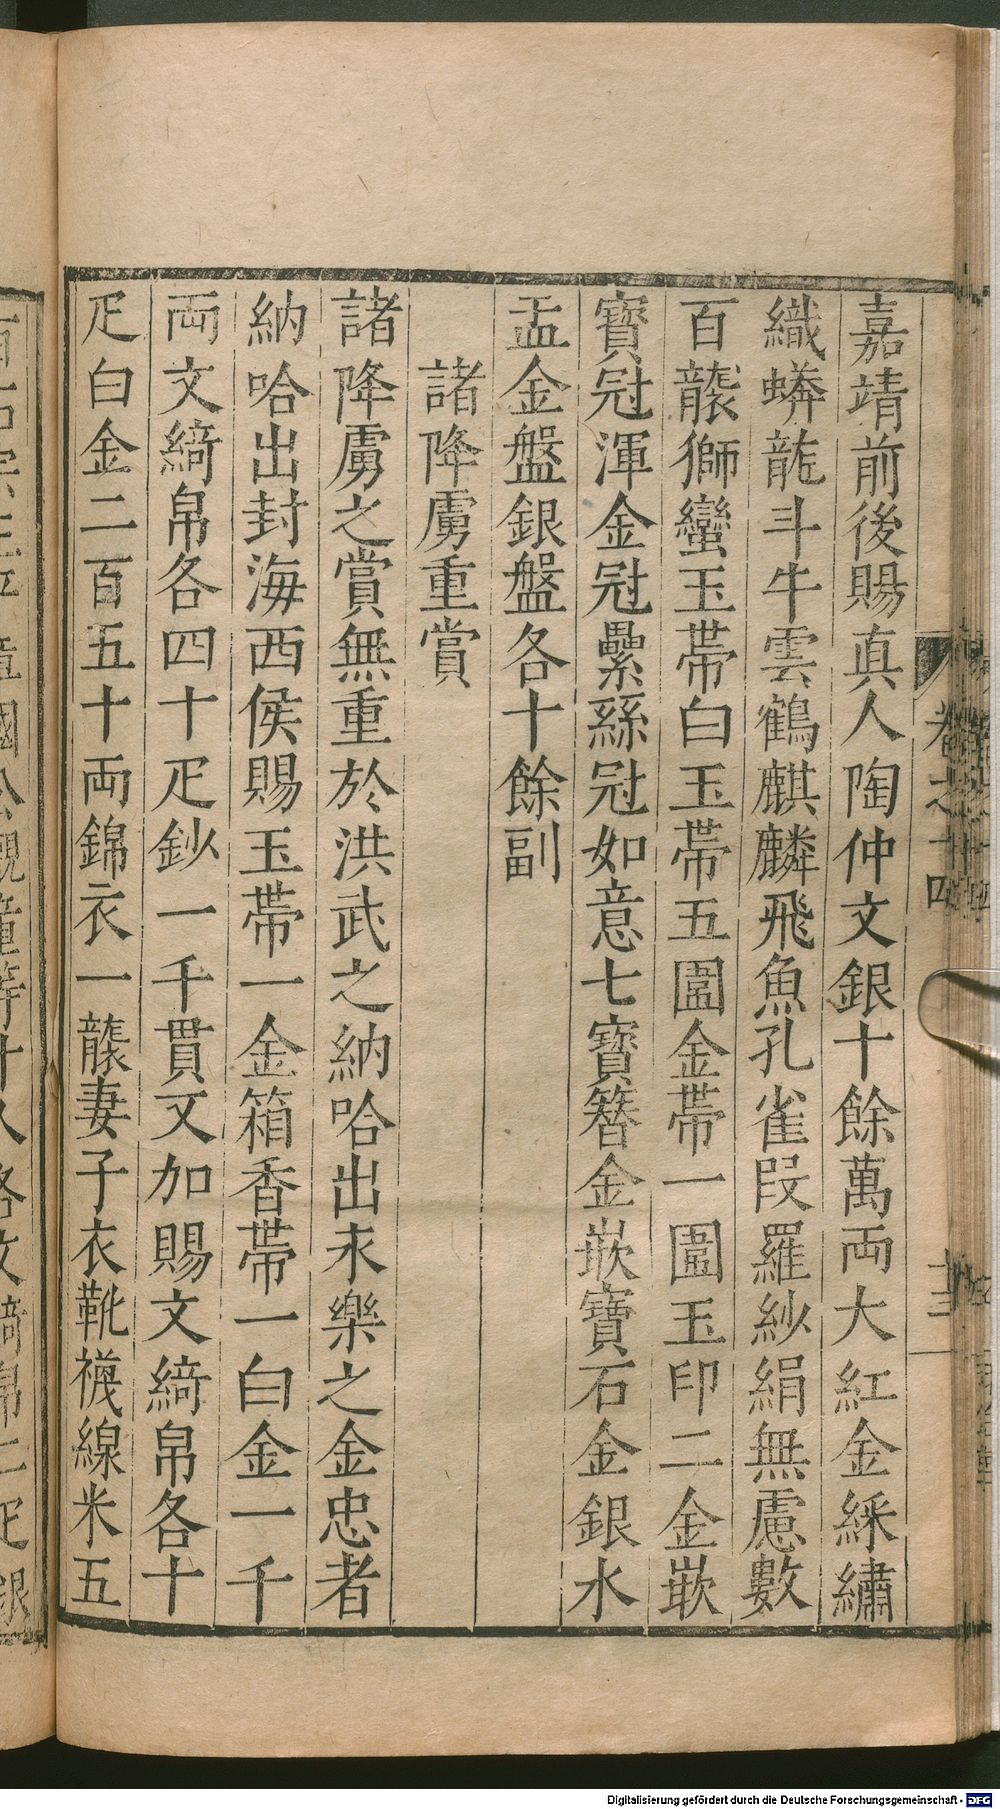 嘉靖前後賜真人陶仲文銀十餘萬両大紅金綵繡
織蟒龍斗牛雲鶴麒麟飛魚孔雀段羅紗絹無慮數
百襲獅蠻玉帶白玉帶五圍金帶一圍玉印二金嵌
寶冠渾金冠纍絲冠如意七寶簪金嵌寶石金銀水
盂金盤銀盤各十餘副
諸降虜重賞
諸降虜之賞無重於洪武之納哈出永樂之金忠者
納哈出封海西侯賜玉帶一金箱香帶一白金一千
両文綺帛各四十疋鈔一千貫又加賜文綺帛各十
疋白金二百五十両錦衣一襲妻子衣靴襪線米五
卷之十四
Digitalisierung gefördert durch die Deutsche Forschungsgemeinschaft - DFG